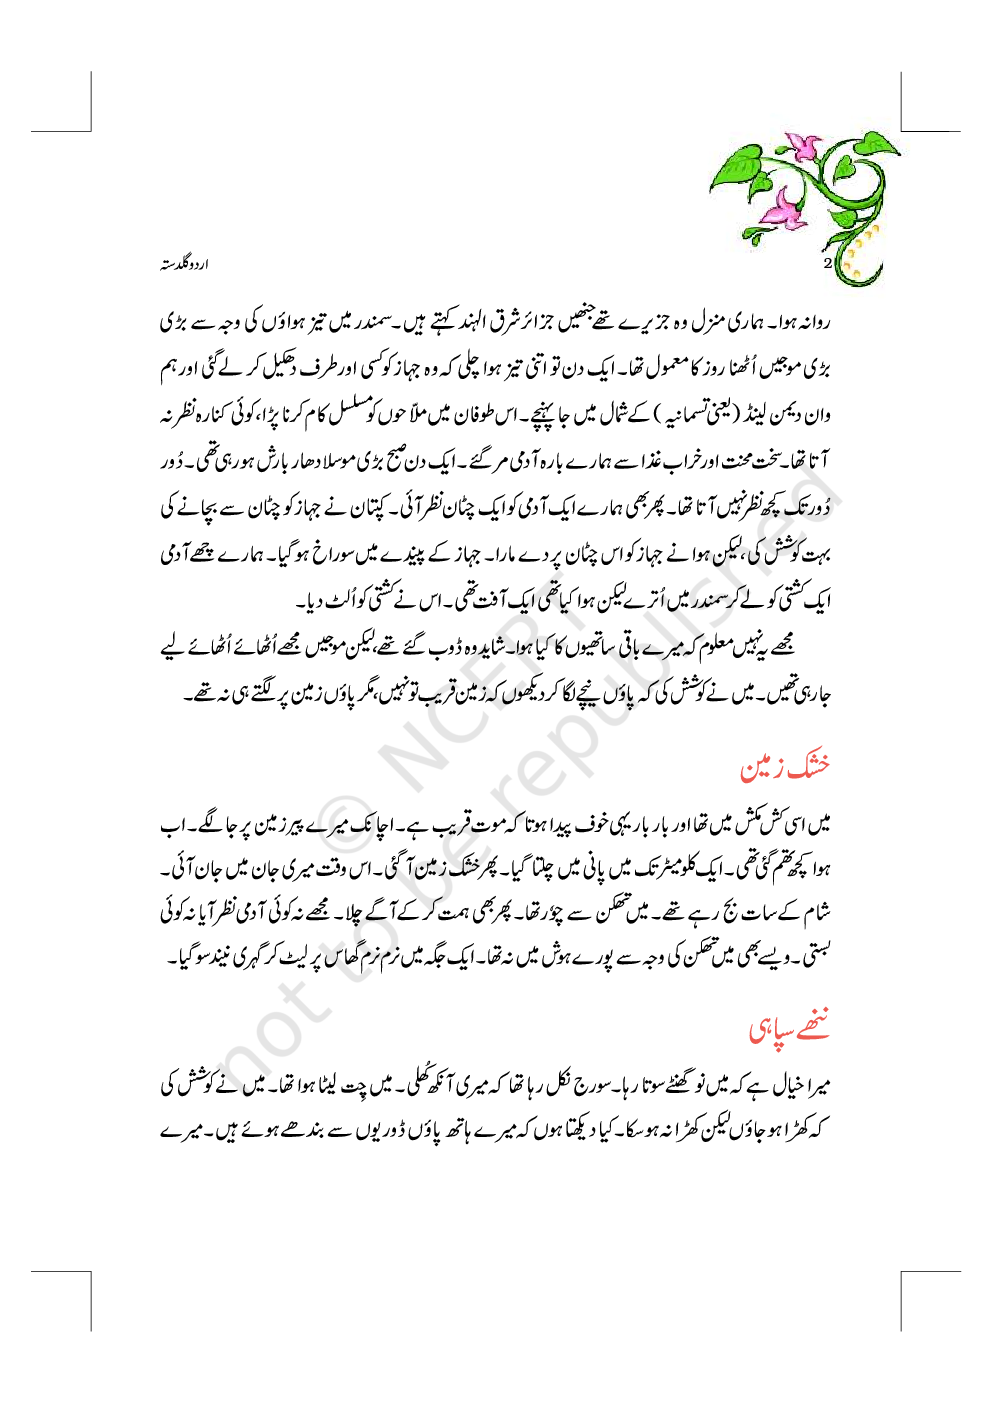 2
اردو گلدستہ
روانہ ہوا۔ ہماری منزل وہ جزیرے تھے جنھیں جزائر شرق الہند کہتے ہیں۔ سمندر میں تیز ہواؤں کی وجہ سے بڑی
بڑی موجیں اُٹھنا روز کا معمول تھا۔ ایک دن تو اتنی تیز ہوا چلی کہ وہ جہاز کو کسی اور طرف دھکیل کر لے گئی اور ہم
وان دیمن لینڈ (یعنی تسمانیہ) کے شمال میں جا پہنچے۔ اس طوفان میں ملّاحوں کو مسلسل کام کرنا پڑا، کوئی کنارہ نظر نہ
آتا تھا۔ سخت محنت اور خراب غذا سے ہمارے بارہ آدمی مر گئے۔ ایک دن صبح بڑی موسلا دھار بارش ہو رہی تھی۔ دُور
دُور تک کچھ نظر نہیں آتا تھا۔ پھر بھی ہمارے ایک آدمی کو ایک چٹان نظر آئی۔ کپتان نے جہاز کو چٹان سے بچانے کی
بہت کوشش کی، لیکن ہوا نے جہاز کو اس چٹان پر دے مارا۔ جہاز کے پیندے میں سوراخ ہو گیا۔ ہمارے چھے آدمی
ایک کشتی کو لے کر سمندر میں اُترے لیکن ہوا کیا تھی ایک آفت تھی۔ اس نے کشتی کو اُلٹ دیا۔
مجھے یہ نہیں معلوم کہ میرے باقی ساتھیوں کا کیا ہوا۔ شاید وہ ڈوب گئے تھے، لیکن موجیں مجھے اُٹھائے اُٹھائے لیے
جا رہی تھیں۔ میں نے کوشش کی کہ پاؤں نیچے لگا کر دیکھوں کہ زمین قریب تو نہیں، مگر پاؤں زمین پر لگتے ہی نہ تھے۔
خشک زمین
میں اسی کش مکش میں تھا اور بار بار یہی خوف پیدا ہوتا کہ موت قریب ہے۔ اچانک میرے پیر زمین پر جا لگے۔ اب
ہوا کچھ تھم گئی تھی۔ ایک کلو میٹر تک میں پانی میں چلتا گیا۔ پھر خشک زمین آ گئی۔ اس وقت میری جان میں جان آئی۔
شام کے سات بج رہے تھے۔ میں تھکن سے چوٗر تھا۔ پھر بھی ہمت کر کے آگے چلا۔ مجھے نہ کوئی آدمی نظر آیا نہ کوئی
بستی۔ ویسے بھی میں تھکن کی وجہ سے پورے ہوش میں نہ تھا۔ ایک جگہ میں نرم نرم گھاس پر لیٹ کر گہری نیند سو گیا۔
ننھے سپاہی
میرا خیال ہے کہ میں نو گھنٹے سوتا رہا۔ سورج نکل رہا تھا کہ میری آنکھ کُھلی۔ میں چِت لیٹا ہوا تھا۔ میں نے کوشش کی
کہ کھڑا ہو جاؤں لیکن کھڑا نہ ہو سکا۔ کیا دیکھتا ہوں کہ میرے ہاتھ پاؤں ڈوریوں سے بندھے ہوئے ہیں۔ میرے
© NCERT
not to be republished